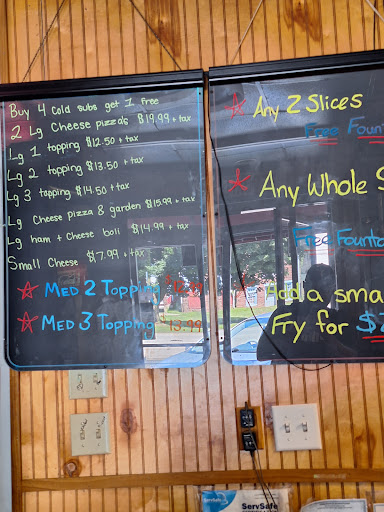 Buy 4 cold subs get 1 free
2 Lg Cheese pizzas $19.99 + tax
Lg 1 topping $12.50 + tax
Lg 2 topping $13.50 + tax
Lg 3 topping $14.50 + tax
Lg Cheese pizza & garden $15.99 + tax
Lg ham + Cheese boli $14.99 + tax
Small Cheese $7.99 + tax
MED 2 Topping
MED 3 Topping 13.99
Any 2 Slices
Free Foun
Any Whole S
Free Founta
Add a sma
Fry for $
ServSafe
ServSafe